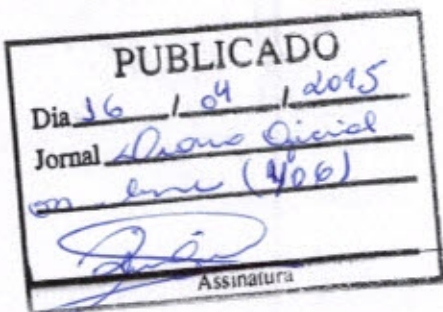 PUBLICADO
Dia 16 / 04 / 2015
Jornal Diario Oficial
on line (406)
Assinatura